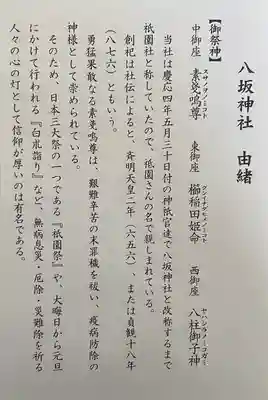 八坂神社 由緒
【御祭神】
スサノヲノミコト
中御座 素戔嗚尊
東御座
クシイナダヒメノミコト
櫛稲田姫命
西御座
ヤハシラノミコガミ
八柱御子神
当社は慶応四年五月三十日付の神祇官達で八坂神社と改称するまで
祇園社と称していたので、祇園さんの名で親しまれている。
創祀は社伝によると、斉明天皇二年(六五六)、または貞観十八年
(八七六)ともいう。
勇猛果敢なる素戔嗚尊は、艱難辛苦の末罪穢を祓い、疫病防除の
神様として崇められている。
そのため、日本三大祭の一つである『祇園祭』や、大晦日から元旦
にかけて行われる『白朮詣り』など、無病息災・厄除・災難除を祈る
人々の心の灯として信仰が厚いのは有名である。